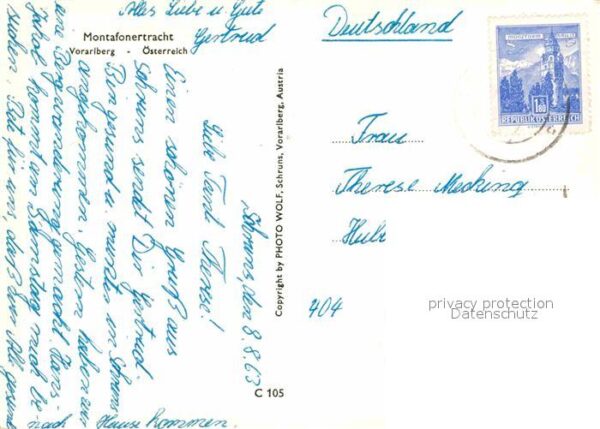 Montafonertracht
Vorarlberg - Österreich
Schruns, den 8.8.63
Liebe Tant Therese!
Einen schönen Gruß aus
Schruns sendet Dir Gertrud.
Bin gesund u. munter in Schruns
angekommen. Gestern haben wir
eine Bergwanderung gemacht.
kommt am Samstag nach
Bet für uns, daß wir alle gesund
nach Hause kommen.
Alles Liebe u. Gute
Gertrud
Copyright by PHOTO WOLF, Schruns, Vorarlberg, Austria
C 105
Deutschland
REPUBLIK ÖSTERREICH
Frau
Therese Mecking
404
privacy protection
Datenschutz